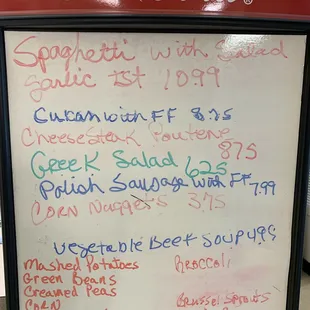 Spaghetti with Salad
Garlic Tst 10.99
Cuban with FF 8.75
Cheese Steak Poutene
8.75
Greek Salad 6.25
Polish Sausage with FF 7.99
Corn Nuggets 3.75
Vegetable Beef Soup 4.99
Mashed Potatoes
Broccoli
Green Beans
Creamed Peas
Brussel Sprouts
Corn